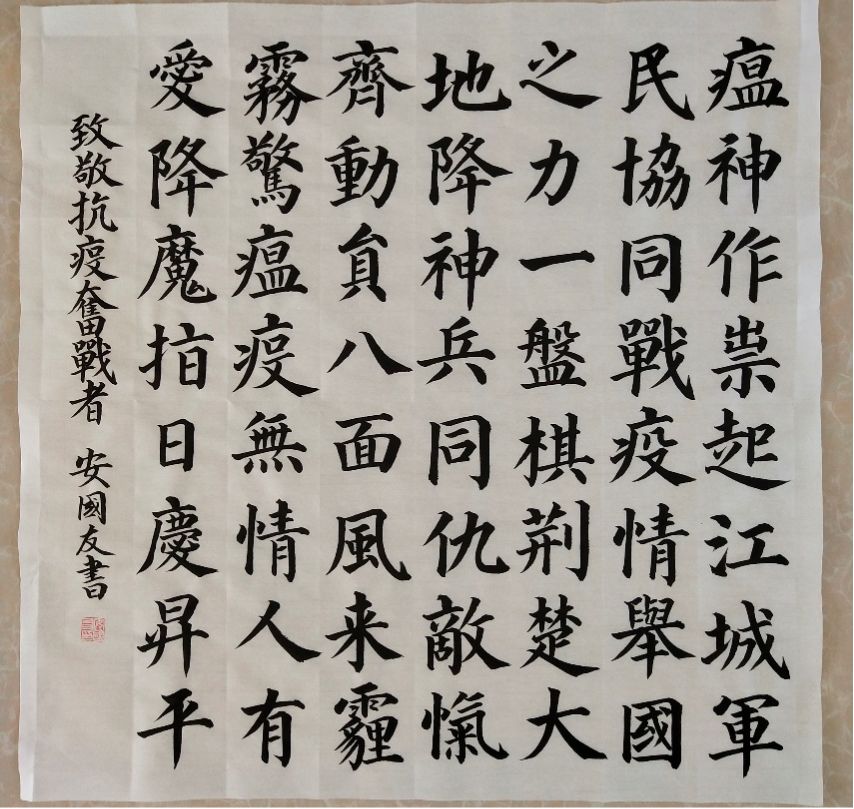 瘟神作祟起江城軍
民協同戰疫情舉國
之力一盤棋荆楚大
地降神兵同仇敵愾
齊動員八面風来霾
霧驚瘟疫無情人有
愛降魔指日慶昇平
致敬抗疫奮戰者 安國友書